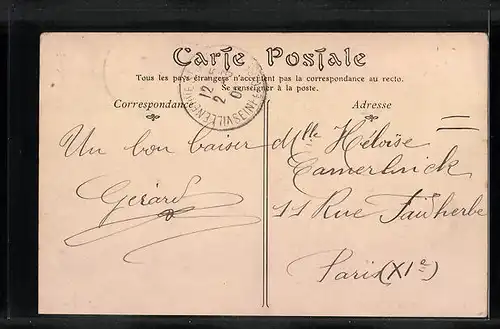 Carte Postale
Tous les pays étrangers n'acceptent pas la correspondance au recto.
Se renseigner à la poste.
Correspondance
Adresse
Un bon baiser
Gérard
Mlle Héloïse
Camerlinck
11 Rue Faidherbe
Paris (XIe)